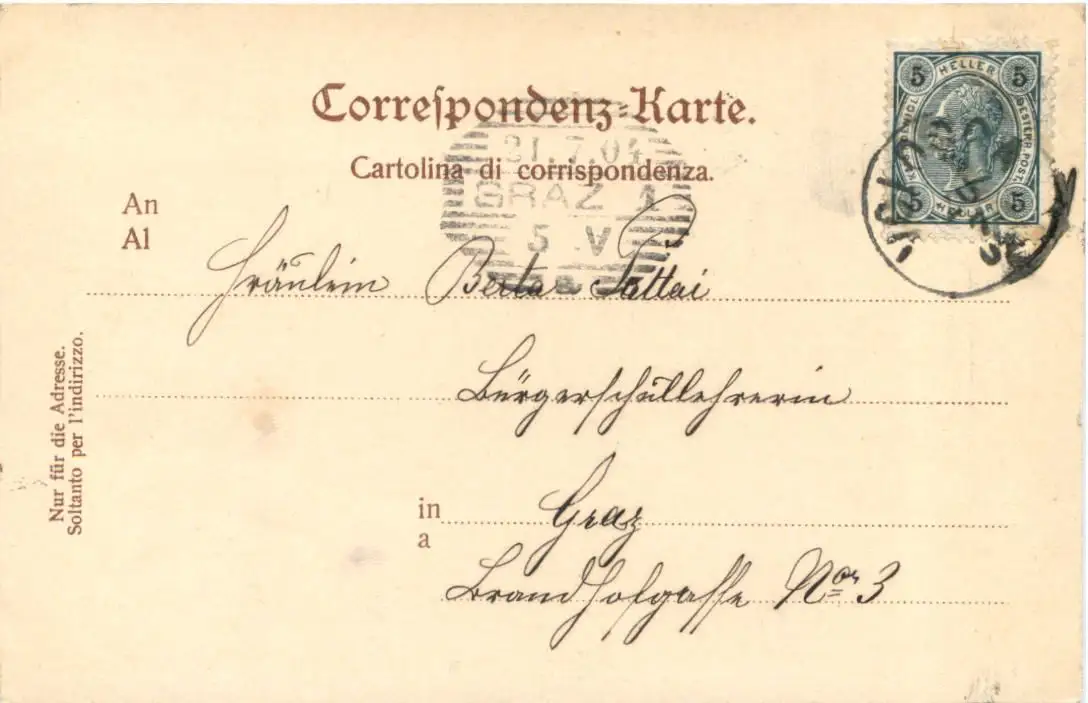 Correspondenz-Karte.
Cartolina di corrispondenza.
5 HELLER 5
KAIS. KÖNIGL. OESTERR. POST
5 HELLER 5
31.7.04
GRAZ 1
5 V
An
Al
Fräulein Berta Pattai
Bürgerschullehrerin
in Graz
a
Brandhofgasse Nor 3
Nur für die Adresse.
Soltanto per l'indirizzo.